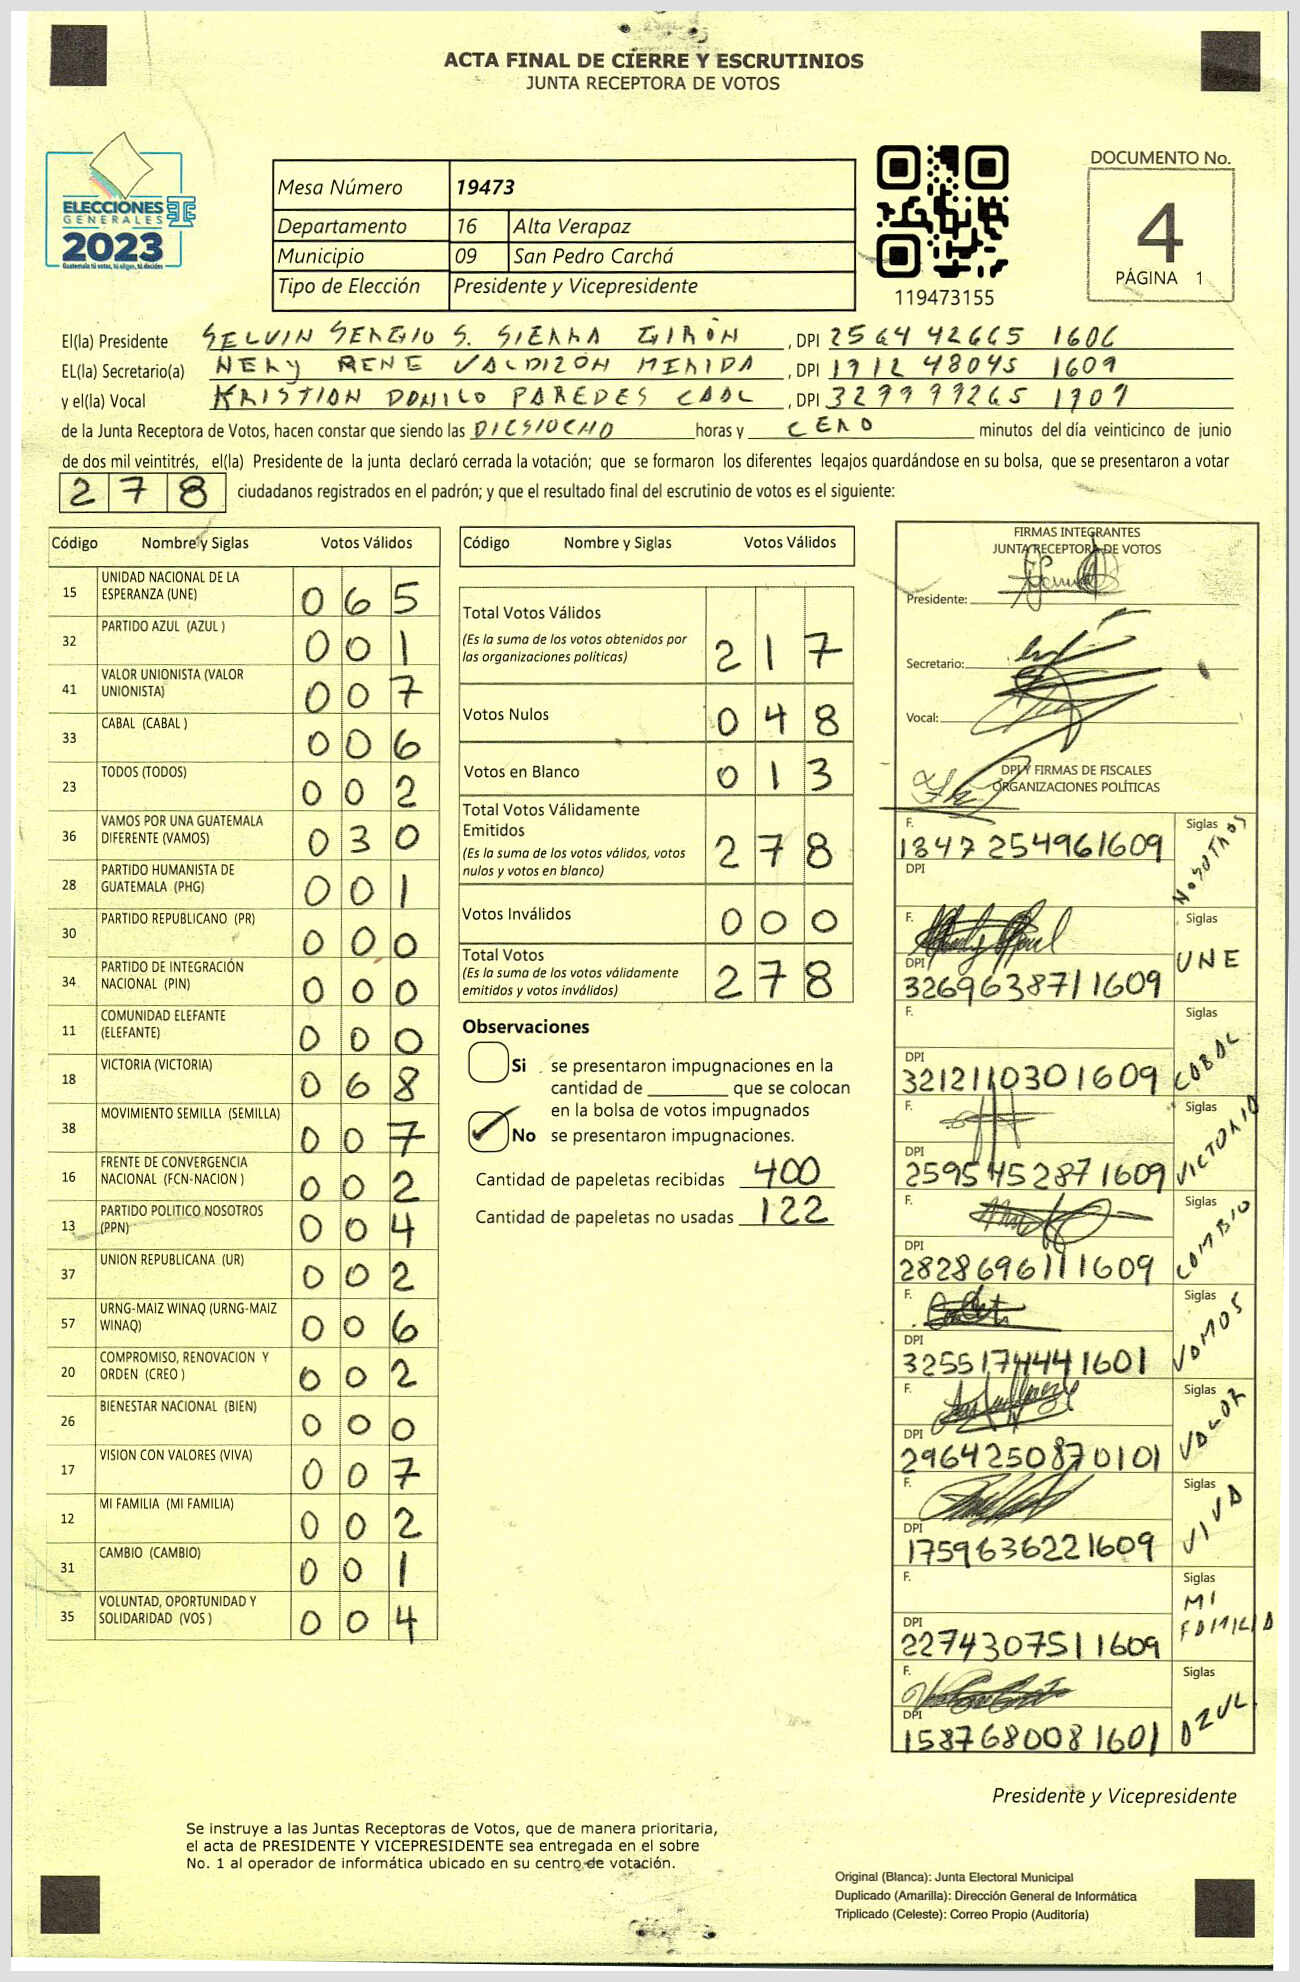 ACTA FINAL DE CIERRE Y ESCRUTINIOS
JUNTA RECEPTORA DE VOTOS
ELECCIONES
GENERALES
2023
Guatemala tú votas, tú eliges, tú decides
Mesa Número 19473
Departamento 16 Alta Verapaz
Municipio 09 San Pedro Carchá
Tipo de Elección Presidente y Vicepresidente
119473155
DOCUMENTO No.
4
PÁGINA 1
El(la) Presidente SELVIN SERGIO S. SIERRA GIRÓN, DPI 2564 42665 1606
EL(la) Secretario(a) NERY RENE VALDIZÓN MERIDA, DPI 1912 48045 1609
y el(la) Vocal KRISTIAN DANILO PAREDES CAAL, DPI 3299 99265 1909
de la Junta Receptora de Votos, hacen constar que siendo las DIESIOCHO horas y CERO minutos del día veinticinco de junio
de dos mil veintitrés, el(la) Presidente de la junta declaró cerrada la votación; que se formaron los diferentes legajos guardándose en su bolsa, que se presentaron a votar
278 ciudadanos registrados en el padrón; y que el resultado final del escrutinio de votos es el siguiente:
Código Nombre y Siglas Votos Válidos
15 UNIDAD NACIONAL DE LA ESPERANZA (UNE) 065
32 PARTIDO AZUL (AZUL ) 001
41 VALOR UNIONISTA (VALOR UNIONISTA) 007
33 CABAL (CABAL ) 006
23 TODOS (TODOS) 002
36 VAMOS POR UNA GUATEMALA DIFERENTE (VAMOS) 030
28 PARTIDO HUMANISTA DE GUATEMALA (PHG) 001
30 PARTIDO REPUBLICANO (PR) 000
34 PARTIDO DE INTEGRACIÓN NACIONAL (PIN) 000
11 COMUNIDAD ELEFANTE (ELEFANTE) 000
18 VICTORIA (VICTORIA) 068
38 MOVIMIENTO SEMILLA (SEMILLA) 007
16 FRENTE DE CONVERGENCIA NACIONAL (FCN-NACION ) 002
13 PARTIDO POLITICO NOSOTROS (PPN) 004
37 UNION REPUBLICANA (UR) 002
57 URNG-MAIZ WINAQ (URNG-MAIZ WINAQ) 006
20 COMPROMISO, RENOVACION Y ORDEN (CREO ) 002
26 BIENESTAR NACIONAL (BIEN) 000
17 VISION CON VALORES (VIVA) 007
12 MI FAMILIA (MI FAMILIA) 002
31 CAMBIO (CAMBIO) 001
35 VOLUNTAD, OPORTUNIDAD Y SOLIDARIDAD (VOS ) 004
Código Nombre y Siglas Votos Válidos
Total Votos Válidos
(Es la suma de los votos obtenidos por las organizaciones políticas) 217
Votos Nulos 048
Votos en Blanco 013
Total Votos Válidamente Emitidos
(Es la suma de los votos válidos, votos nulos y votos en blanco) 278
Votos Inválidos 000
Total Votos
(Es la suma de los votos válidamente emitidos y votos inválidos) 278
Observaciones
Si se presentaron impugnaciones en la
cantidad de ________ que se colocan
en la bolsa de votos impugnados
No se presentaron impugnaciones.
Cantidad de papeletas recibidas 400
Cantidad de papeletas no usadas 122
FIRMAS INTEGRANTES
JUNTA RECEPTORA DE VOTOS
Presidente:
Secretario:
Vocal:
DPI Y FIRMAS DE FISCALES
ORGANIZACIONES POLÍTICAS
F. Siglas
1847 254961609 NOSOTROS
DPI
F. Siglas
UNE
DPI
3269638711609
F. Siglas
DPI
3212110301609 CABAL
F. Siglas
DPI
2595452871609 VICTORIA
F. Siglas
DPI
2828696111609 CAMBIO
F. Siglas
DPI
3255174441601 VAMOS
F. Siglas
DPI
2964250870101 VALOR
F. Siglas
DPI
1759636221609 VIVA
F. Siglas
MI
FAMILIA
DPI
2274307511609
F. Siglas
DPI
1587680081601 AZUL
Presidente y Vicepresidente
Se instruye a las Juntas Receptoras de Votos, que de manera prioritaria,
el acta de PRESIDENTE Y VICEPRESIDENTE sea entregada en el sobre
No. 1 al operador de informática ubicado en su centro de votación.
Original (Blanca): Junta Electoral Municipal
Duplicado (Amarilla): Dirección General de Informática
Triplicado (Celeste): Correo Propio (Auditoría)